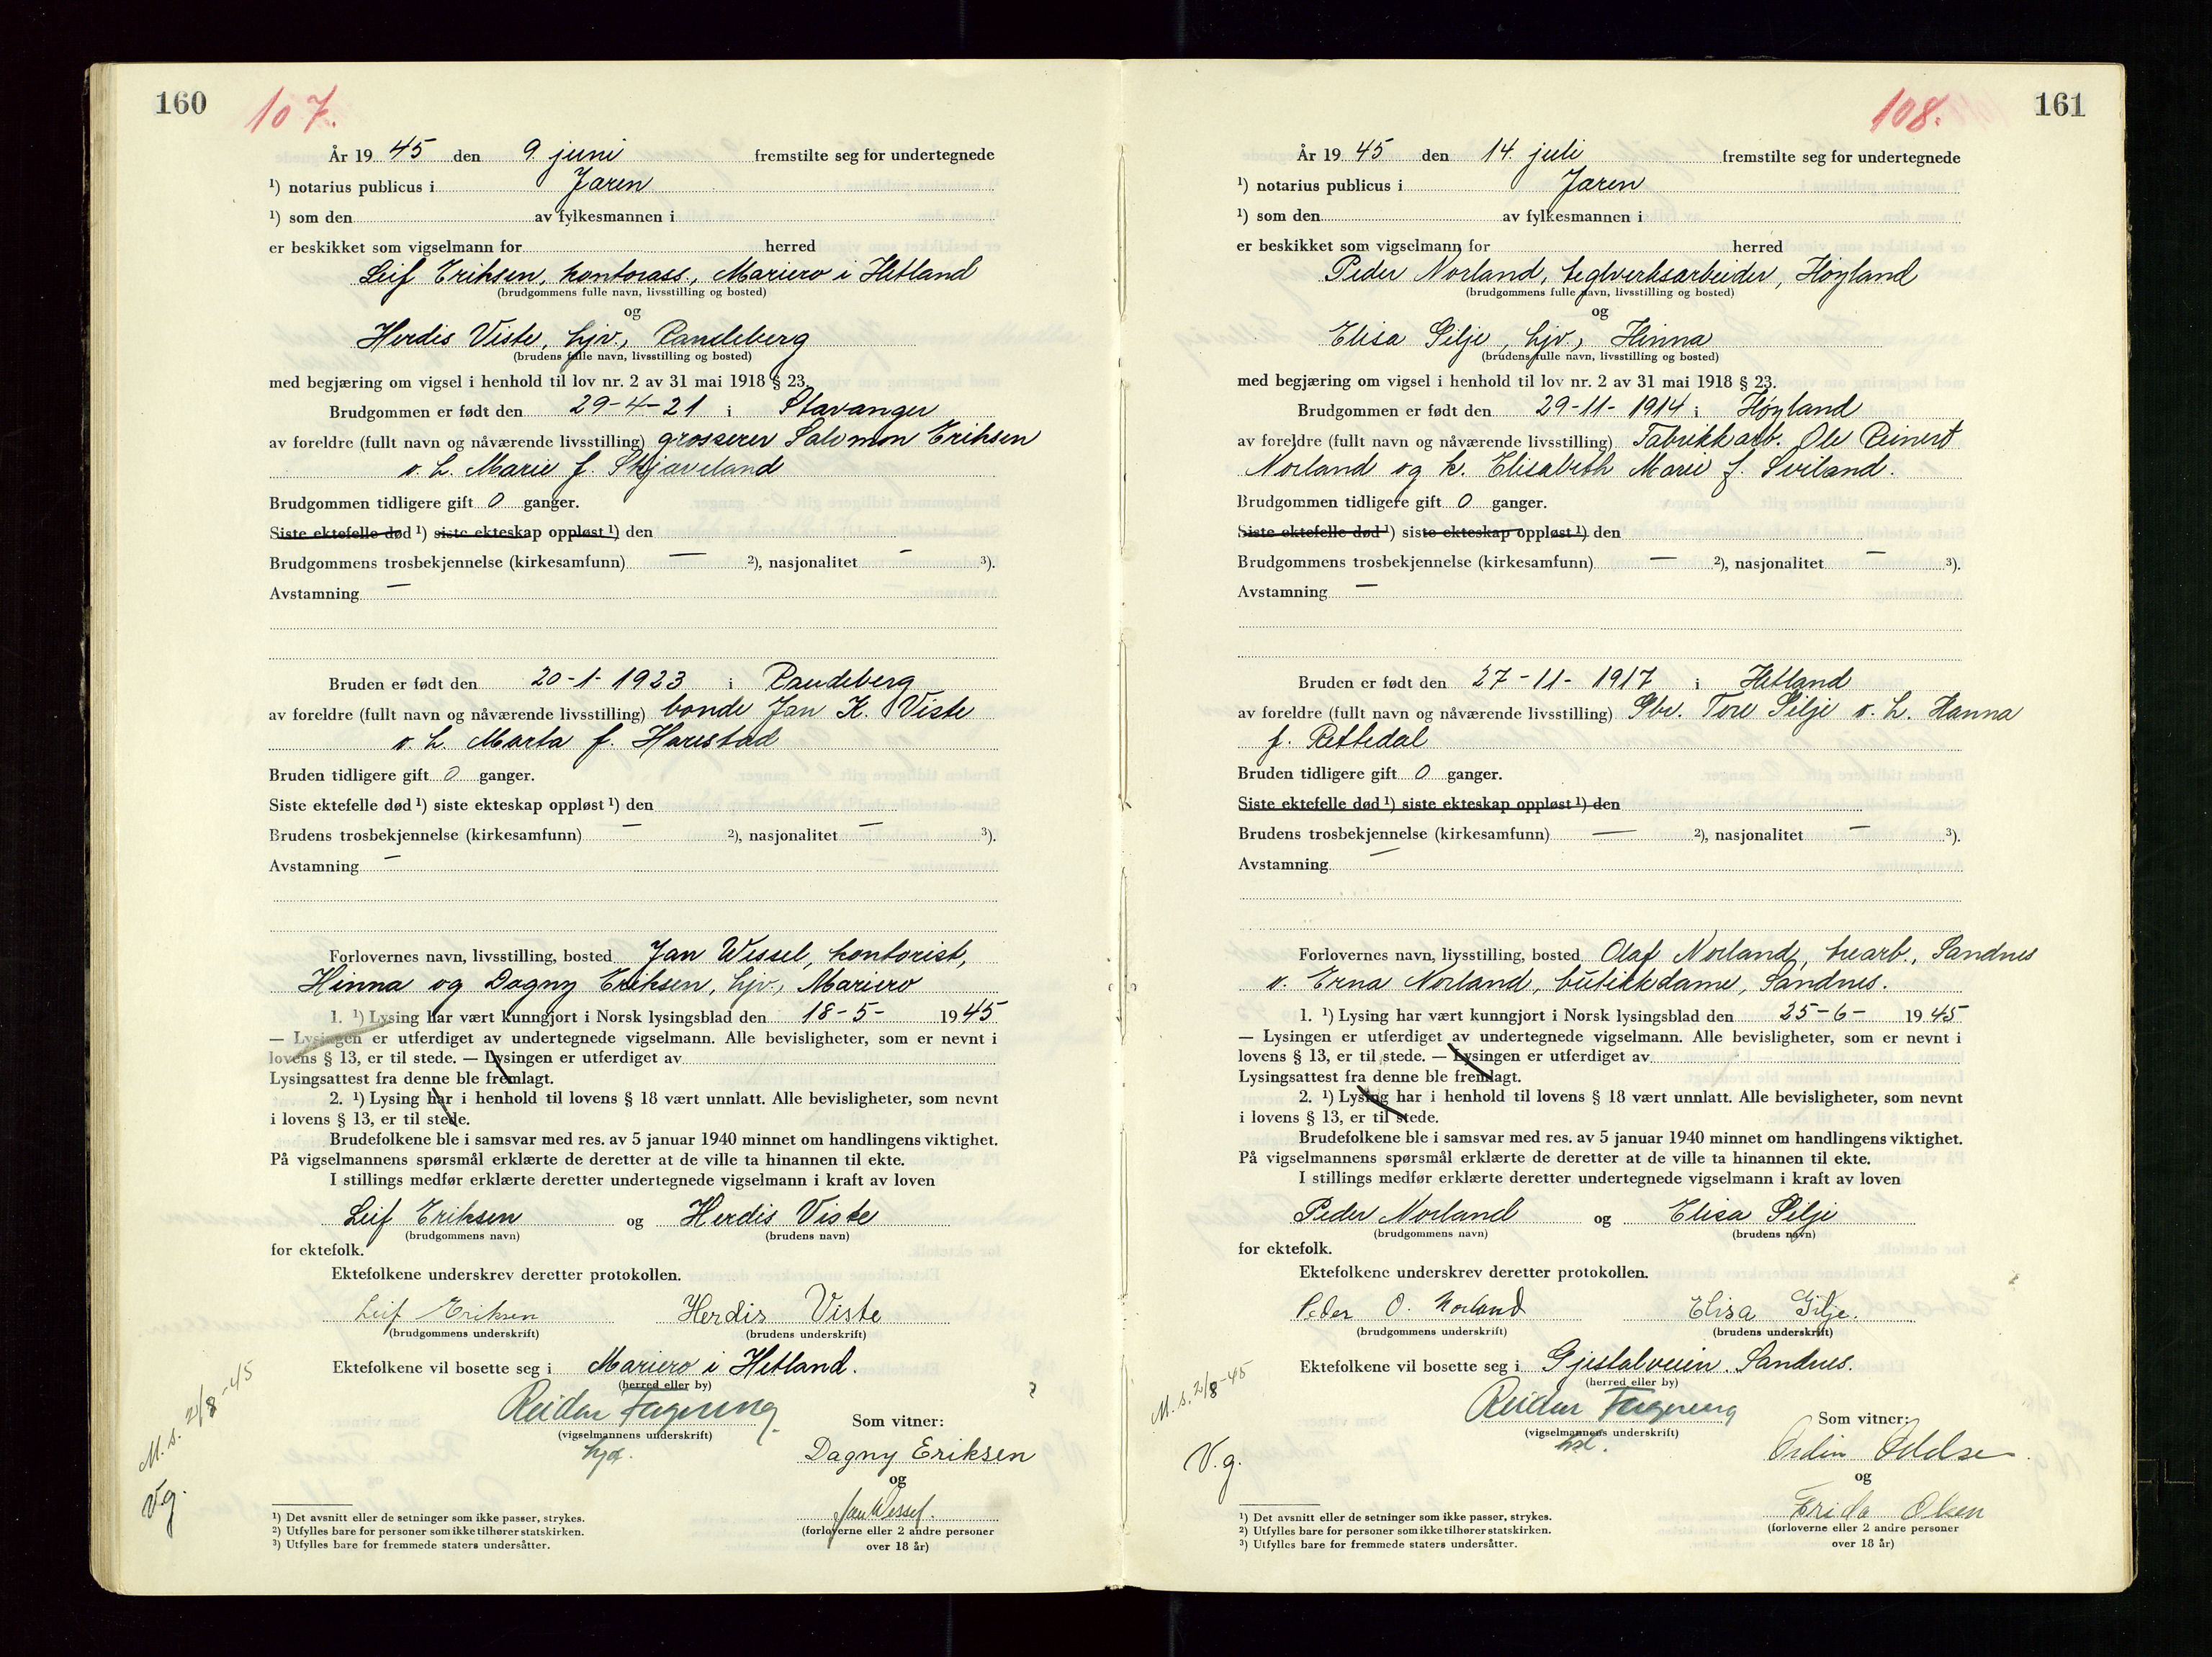 160
107.
År 19 45 den 9. juni fremstilte seg for undertegnede
¹) notarius publicus i Jæren
¹) som den av fylkesmannen i
er beskikket som vigselmann for herred
Leif Eriksen, kontorass., Mariero i Hetland
(brudgommens fulle navn, livsstilling og bosted)
og
Herdis Viste, hjv., Randeberg
(brudens fulle navn, livsstilling og bosted)
med begjæring om vigsel i henhold til lov nr. 2 av 31 mai 1918 § 23.
Brudgommen er født den 29-4-21 i Stavanger
av foreldre (fullt navn og nåværende livsstilling) grosserer Salomon Eriksen
o. h. Marie f. Skjæveland
Brudgommen tidligere gift 0 ganger.
Siste ektefelle død ¹) siste ekteskap oppløst ¹) den
Brudgommens trosbekjennelse (kirkesamfunn) — ²), nasjonalitet — ³).
Avstamning —
Bruden er født den 20-1-1923 i Randeberg
av foreldre (fullt navn og nåværende livsstilling) bonde Jan K. Viste
o. h. Marta f. Harestad
Bruden tidligere gift 0 ganger.
Siste ektefelle død ¹) siste ekteskap oppløst ¹) den
Brudens trosbekjennelse (kirkesamfunn) — ²), nasjonalitet — ³).
Avstamning —
Forlovernes navn, livsstilling, bosted Jan Wessel, kontorist,
Hinna og Dagny Eriksen, hjv., Mariero
1. ¹) Lysing har vært kunngjort i Norsk lysingsblad den 18-5- 19 45
— Lysingen er utferdiget av undertegnede vigselmann. Alle bevisligheter, som er nevnt i
lovens § 13, er til stede. — Lysingen er utferdiget av
Lysingsattest fra denne ble fremlagt.
2. ¹) Lysing har i henhold til lovens § 18 vært unnlatt. Alle bevisligheter, som nevnt
i lovens § 13, er til stede.
Brudefolkene ble i samsvar med res. av 5 januar 1940 minnet om handlingens viktighet.
På vigselmannens spørsmål erklærte de deretter at de ville ta hinannen til ekte.
I stillings medfør erklærte deretter undertegnede vigselmann i kraft av loven
Leif Eriksen og Herdis Viste
(brudgommens navn) (brudens navn)
for ektefolk.
Ektefolkene underskrev deretter protokollen.
Leif Eriksen Herdis Viste
(brudgommens underskrift) (brudens underskrift)
Ektefolkene vil bosette seg i Mariero i Hetland.
(herred eller by)
M. s. 2/8-45
Reidar Fagering
(vigselmannens underskrift)
Som vitner:
Dagny Eriksen
og
V.g.
Jan Wessel.
(forloverne eller 2 andre personer
over 18 år)
¹) Det avsnitt eller de setninger som ikke passer, strykes.
²) Utfylles bare for personer som ikke tilhører statskirken.
³) Utfylles bare for fremmede staters undersåtter.
108.
161
År 19 45 den 14. juli fremstilte seg for undertegnede
¹) notarius publicus i Jæren
¹) som den av fylkesmannen i
er beskikket som vigselmann for herred
Peder Norland, teglverksarbeider, Høyland
(brudgommens fulle navn, livsstilling og bosted)
og
Elisa Gilje, hjv., Hinna
(brudens fulle navn, livsstilling og bosted)
med begjæring om vigsel i henhold til lov nr. 2 av 31 mai 1918 § 23.
Brudgommen er født den 29-11-1914 i Høyland
av foreldre (fullt navn og nåværende livsstilling) Fabrikkarb. Ole Reinert
Norland og h. Elisabeth Marie f. Sviland.
Brudgommen tidligere gift 0 ganger.
Siste ektefelle død ¹) siste ekteskap oppløst ¹) den
Brudgommens trosbekjennelse (kirkesamfunn) — ²), nasjonalitet — ³).
Avstamning —
Bruden er født den 27-11-1917 i Hetland
av foreldre (fullt navn og nåværende livsstilling) Gbr. Tore Gilje o. h. Hanna
f. Rettedal
Bruden tidligere gift 0 ganger.
Siste ektefelle død ¹) siste ekteskap oppløst ¹) den
Brudens trosbekjennelse (kirkesamfunn) — ²), nasjonalitet — ³).
Avstamning —
Forlovernes navn, livsstilling, bosted Olaf Norland, trearb., Sandnes
o. Erna Norland, butikkdame, Sandnes.
1. ¹) Lysing har vært kunngjort i Norsk lysingsblad den 25-6- 19 45
— Lysingen er utferdiget av undertegnede vigselmann. Alle bevisligheter, som er nevnt i
lovens § 13, er til stede. — Lysingen er utferdiget av
Lysingsattest fra denne ble fremlagt.
2. ¹) Lysing har i henhold til lovens § 18 vært unnlatt. Alle bevisligheter, som nevnt
i lovens § 13, er til stede.
Brudefolkene ble i samsvar med res. av 5 januar 1940 minnet om handlingens viktighet.
På vigselmannens spørsmål erklærte de deretter at de ville ta hinannen til ekte.
I stillings medfør erklærte deretter undertegnede vigselmann i kraft av loven
Peder Norland og Elisa Gilje
(brudgommens navn) (brudens navn)
for ektefolk.
Ektefolkene underskrev deretter protokollen.
Peder O. Norland Elisa Gilje.
(brudgommens underskrift) (brudens underskrift)
Ektefolkene vil bosette seg i Gjestalveien. Sandnes.
(herred eller by)
M. s. 2/8-45
Reidar Fagering
(vigselmannens underskrift)
Som vitner:
V.g.
og
Frida Olsen
(forloverne eller 2 andre personer
over 18 år)
¹) Det avsnitt eller de setninger som ikke passer, strykes.
²) Utfylles bare for personer som ikke tilhører statskirken.
³) Utfylles bare for fremmede staters undersåtter.